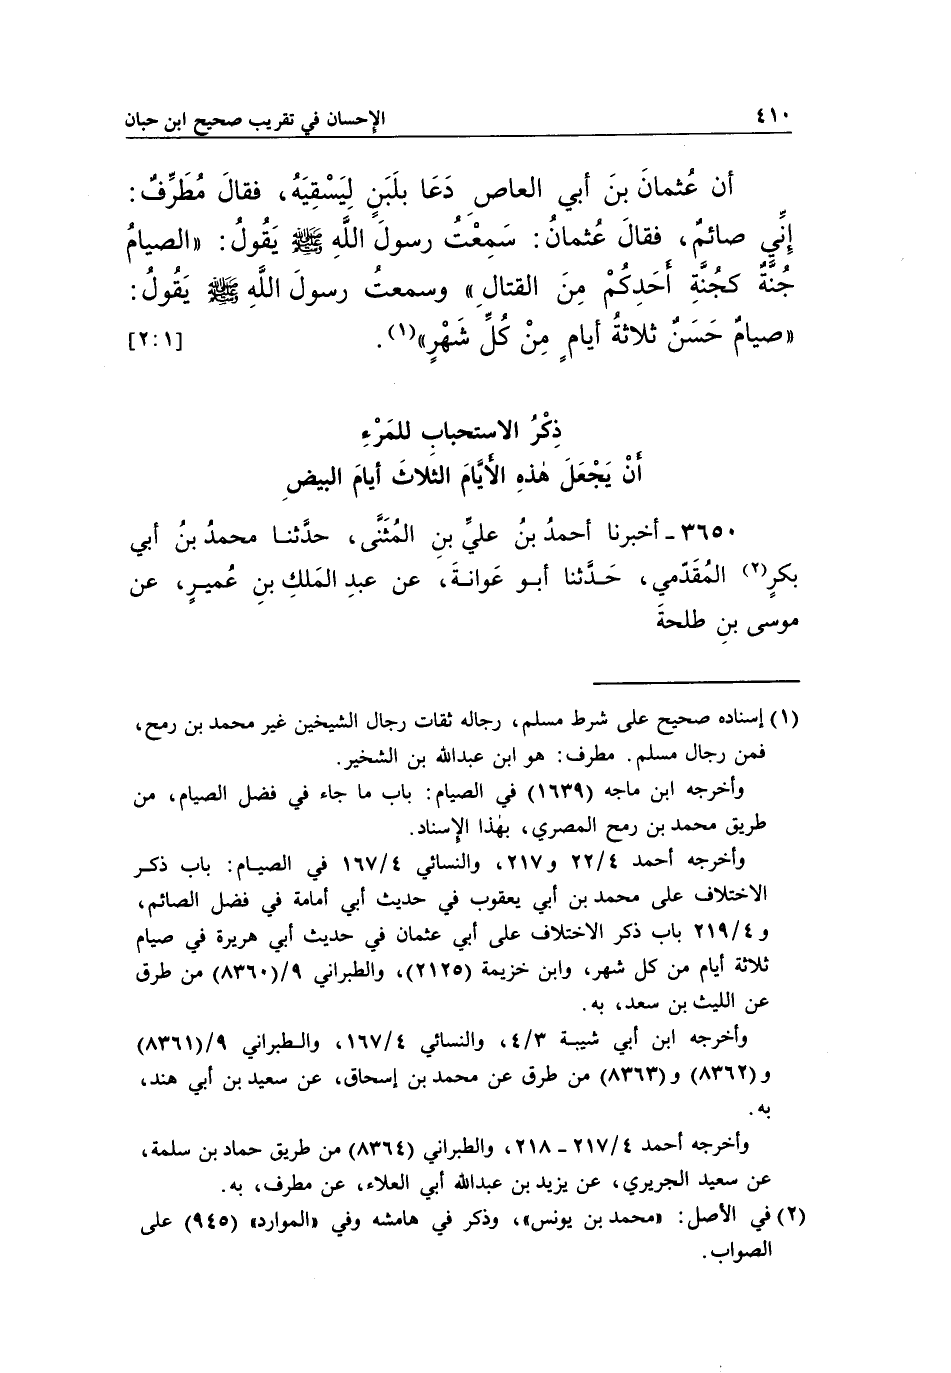 ٤١٠ الإحسان في تقريب صحيح ابن حبان
أن عُثمانَ بنَ أبي العاصِ دَعَا بلَبَنٍ لِيَسْقِيَهُ، فقالَ مُطَرِّفٌ:
إنِّي صائمٌ، فقالَ عُثمانُ: سَمِعْتُ رسولَ اللَّهِ ﷺ يَقُولُ: «الصيامُ
جُنَّةٌ كجُنَّةِ أَحَدِكُمْ مِنَ القتالِ» وسمعتُ رسولَ اللَّهِ ﷺ يَقُولُ:
«صيامٌ حَسَنٌ ثلاثةُ أيامٍ مِنْ كُلِّ شَهْرٍ»(١). [٢:١]
ذِكْرُ الاستحبابِ للمَرْءِ
أَنْ يَجْعَلَ هٰذهِ الأَيَّامَ الثلاثَ أيامَ البيضِ
٣٦٥٠ - أخبرنا أحمدُ بنُ عليِّ بنِ المُثَنَّى، حدَّثنا محمدُ بنُ أبي
بكرٍ(٢) المُقَدَّمي، حَدَّثنا أبو عَوانةَ، عن عبدِ المَلكِ بنِ عُميرٍ، عن
موسى بنِ طلحةَ
(١) إسناده صحيح على شرط مسلم، رجاله ثقات رجال الشيخين غير محمد بن رمح،
فمن رجال مسلم. مطرف: هو ابن عبدالله بن الشخير.
وأخرجه ابن ماجه (١٦٣٩) في الصيام: باب ما جاء في فضل الصيام، من
طريق محمد بن رمح المصري، بهٰذا الإسناد.
وأخرجه أحمد ٢٢/٤ و٢١٧، والنسائي ١٦٧/٤ في الصيام: باب ذكر
الاختلاف على محمد بن أبي يعقوب في حديث أبي أمامة في فضل الصائم،
و٢١٩/٤ باب ذكر الاختلاف على أبي عثمان في حديث أبي هريرة في صيام
ثلاثة أيام من كل شهر، وابن خزيمة (٢١٢٥)، والطبراني ٩/(٨٣٦٠) من طرق
عن الليث بن سعد، به.
وأخرجه ابن أبي شيبة ٤/٣، والنسائي ١٦٧/٤، والطبراني ٩/(٨٣٦١)
و(٨٣٦٢) و(٨٣٦٣) من طرق عن محمد بن إسحاق، عن سعيد بن أبي هند،
به.
وأخرجه أحمد ٢١٧/٤ - ٢١٨، والطبراني (٨٣٦٤) من طريق حماد بن سلمة،
عن سعيد الجريري، عن يزيد بن عبدالله أبي العلاء، عن مطرف، به.
(٢) في الأصل: «محمد بن يونس»، وذكر في هامشه وفي «الموارد» (٩٤٥) على
الصواب.